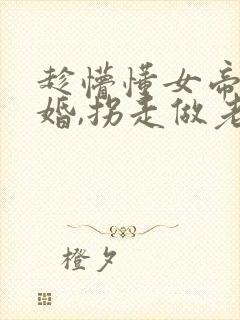 趁懵懂女帝
婚,拐走做老
橙夕